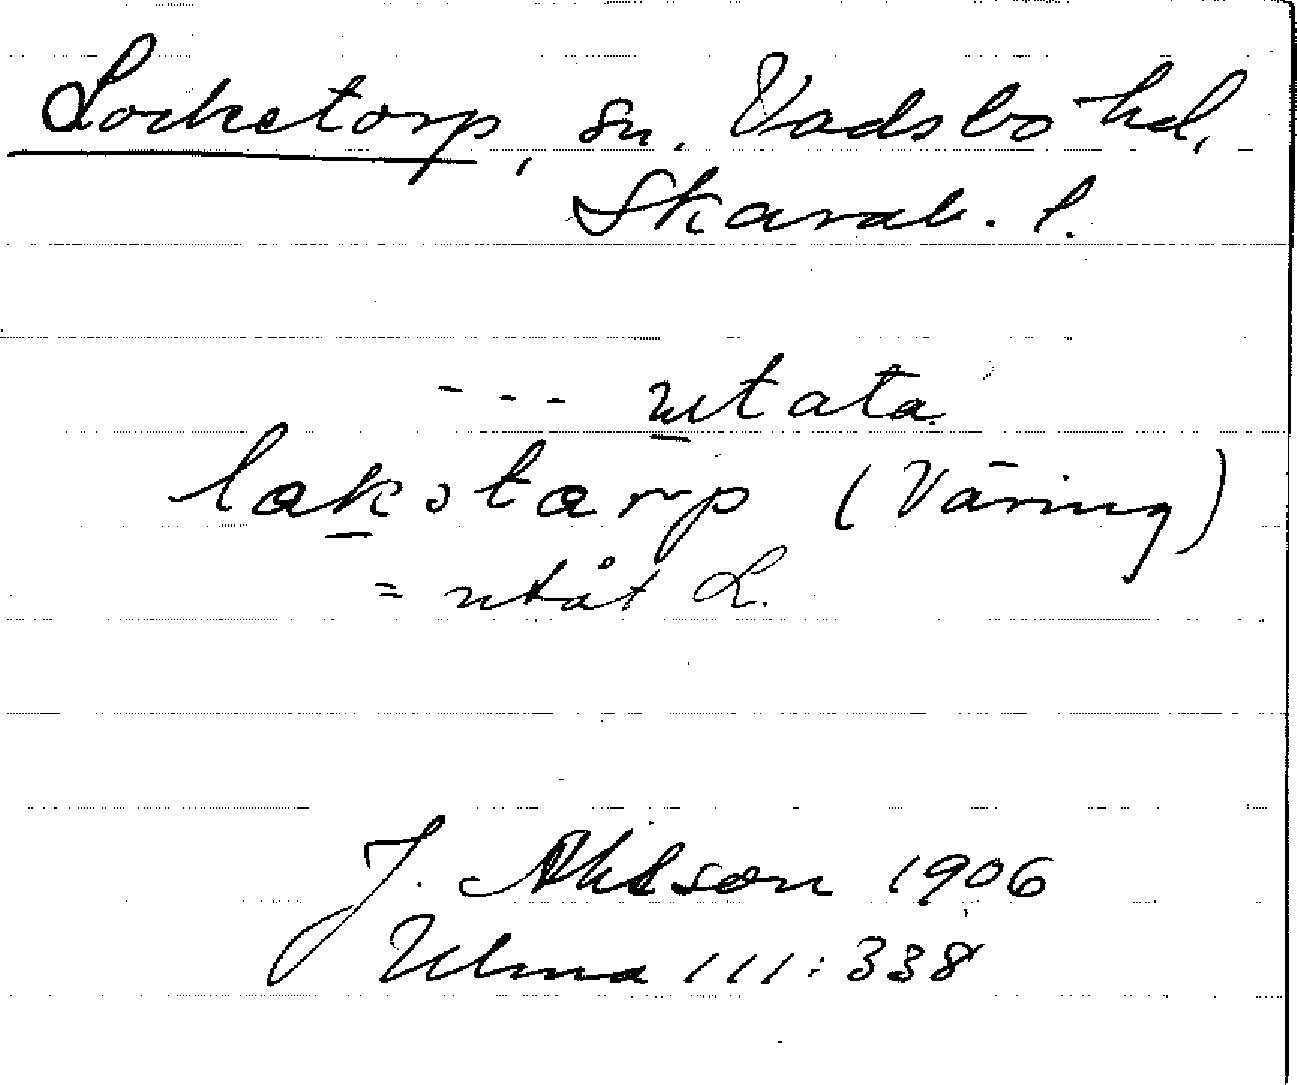 Locketorp, sn. Vadsbo hd,
Skarab. l.
- - - utata
lakotarp (Väring)
= utåt L.
J. Ahlson 1906
Ulma 111:338